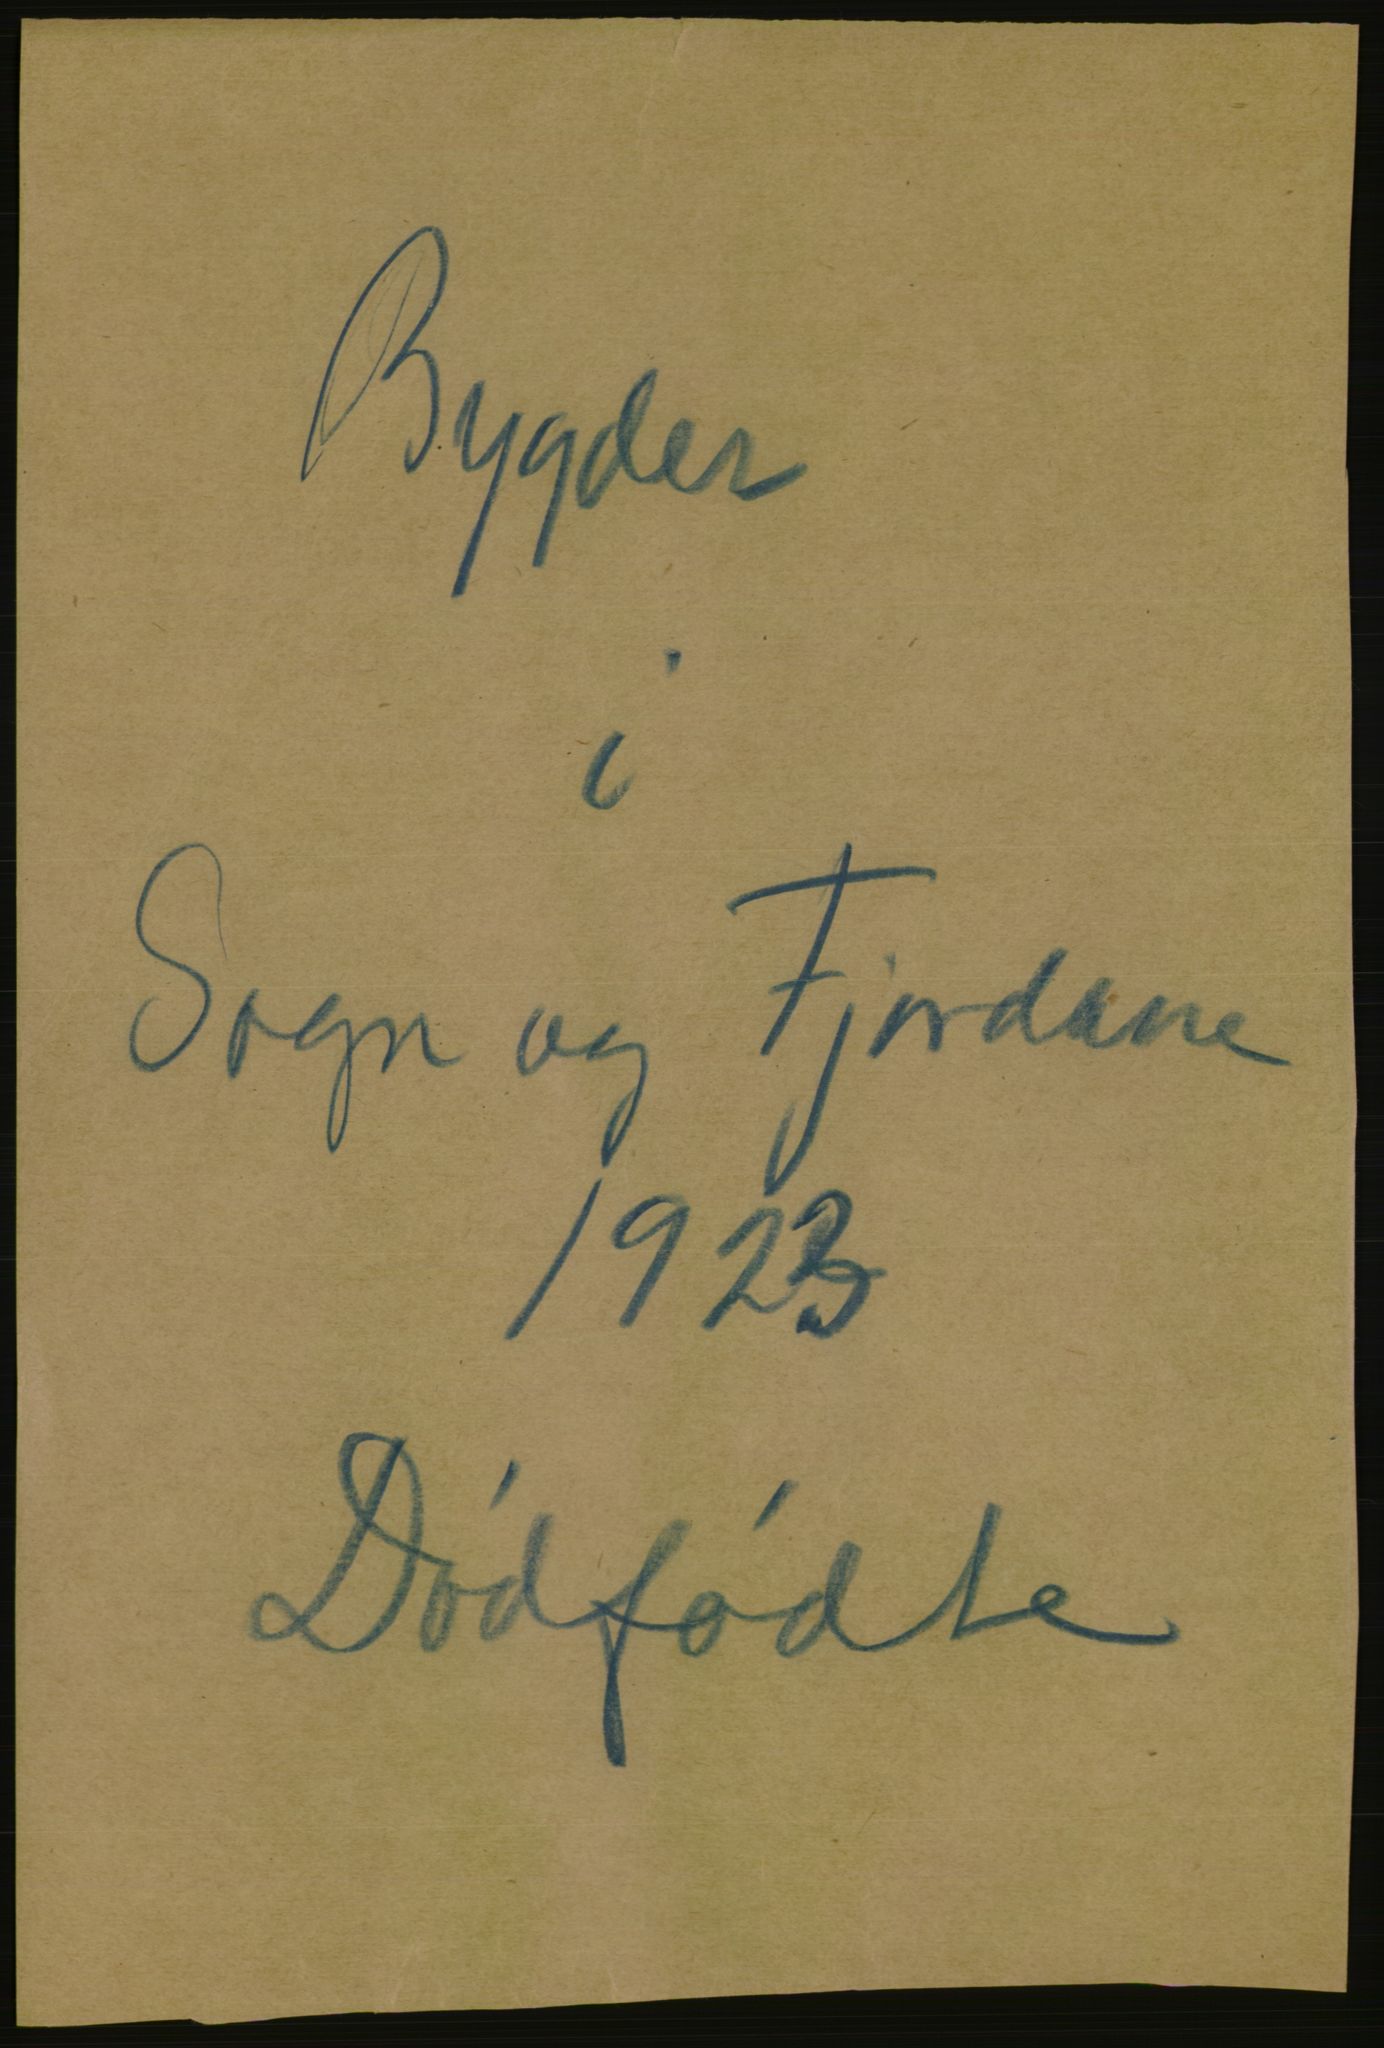 Bygder
i
Sogn og Fjordane
1923
Dødfødte